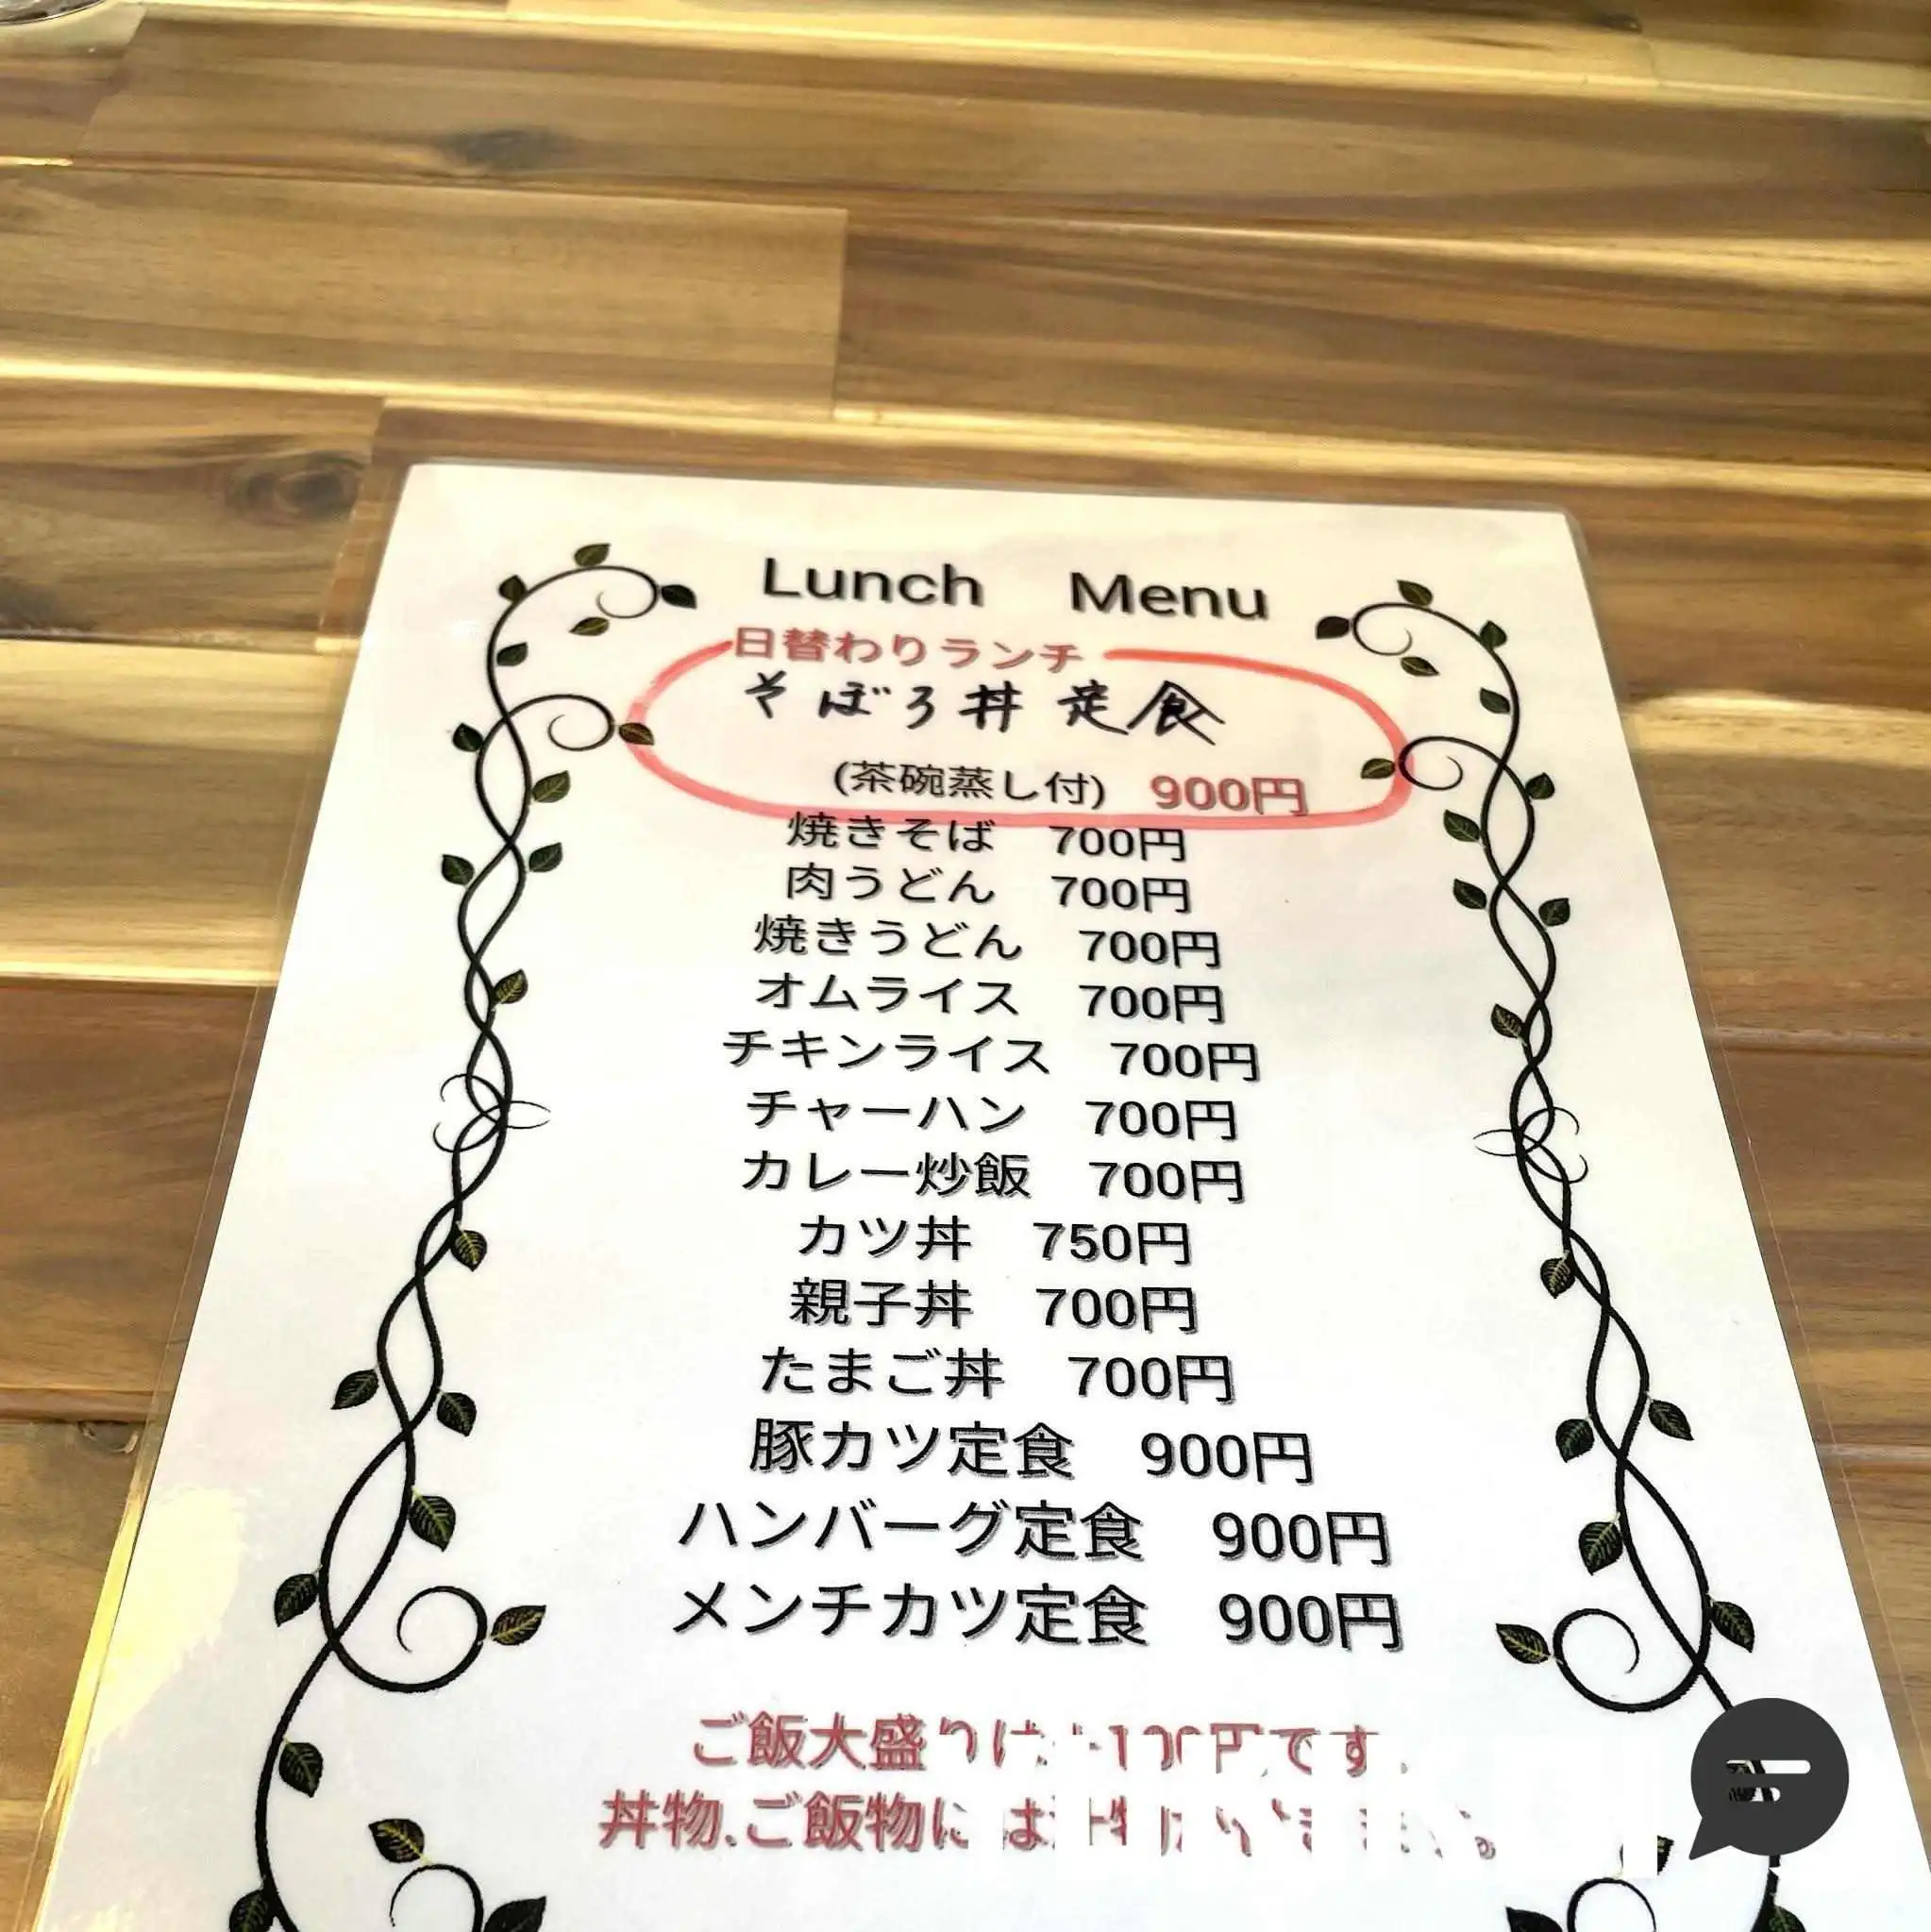 Lunch Menu
日替わりランチ
そぼろ丼 定食
(茶碗蒸し付) 900円
焼きそば 700円
肉うどん 700円
焼きうどん 700円
オムライス 700円
チキンライス 700円
チャーハン 700円
カレー炒飯 700円
カツ丼 750円
親子丼 700円
たまご丼 700円
豚カツ定食 900円
ハンバーグ定食 900円
メンチカツ定食 900円
ご飯大盛りは+100円です
丼物、ご飯物には